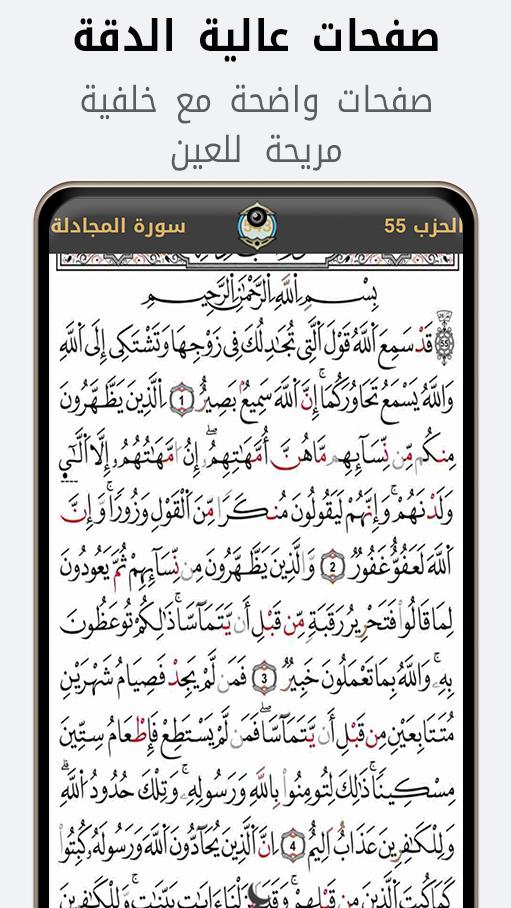 صفحات عالية الدقة
صفحات واضحة مع خلفية
مريحة للعين
الحزب 55 سورة المجادلة
بِسْمِ اللَّهِ الرَّحْمَٰنِ الرَّحِيمِ
55 قَدْ سَمِعَ اَللَّهُ قَوْلَ اَلَّتِي تُجَٰدِلُكَ فِي زَوْجِهَا وَتَشْتَكِي إِلَى اَللَّهِ
وَاللَّهُ يَسْمَعُ تَحَاوُرَكُمَا إِنَّ اَللَّهَ سَمِيعٌ بَصِيرٌ 1 اِلَّذِينَ يَظَّهَّرُونَ
مِنكُم مِّن نِّسَآئِهِم مَّا هُنَّ أُمَّهَٰتِهِمُۥ إِنُ امَّهَٰتُهُمُۥ إِلَّا اَلَّٰٓـِٔي
وَلَدْنَهُمْ وَإِنَّهُمْ لَيَقُولُونَ مُنكَرًا مِّنَ اَلْقَوْلِ وَزُورًا وَإِنَّ
اَللَّهَ لَعَفُوٌّ غَفُورٌ 2 وَالَّذِينَ يَظَّهَّرُونَ مِن نِّسَآئِهِمْ ثُمَّ يَعُودُونَ
لِمَا قَالُواْ فَتَحْرِيرُ رَقَبَةٍ مِّن قَبْلِ أَن يَّتَمَآسَّا ذَٰلِكُمْ تُوعَظُونَ
بِهِۦ وَاللَّهُ بِمَا تَعْمَلُونَ خَبِيرٌ 3 فَمَن لَّمْ يَجِدْ فَصِيَامُ شَهْرَيْنِ
مُتَتَابِعَيْنِ مِن قَبْلِ أَن يَّتَمَآسَّا فَمَن لَّمْ يَسْتَطِعْ فَإِطْعَامُ سِتِّينَ
مِسْكِينًا ذَٰلِكَ لِتُومِنُواْ بِاللَّهِ وَرَسُولِهِۦ وَتِلْكَ حُدُودُ اُللَّهِ
وَلِلْكَٰفِرِينَ عَذَابٌ اَلِيمٌ 4 اِنَّ اَلَّذِينَ يُحَآدُّونَ اَللَّهَ وَرَسُولَهُۥ كُبِتُواْ
كَمَا كُبِتَ اَلَّذِينَ مِن قَبْلِهِمْ وَقَدَ اَنزَلْنَا ءَايَٰتٍ بَيِّنَٰتٍ وَلِلْكَٰفِرِينَ